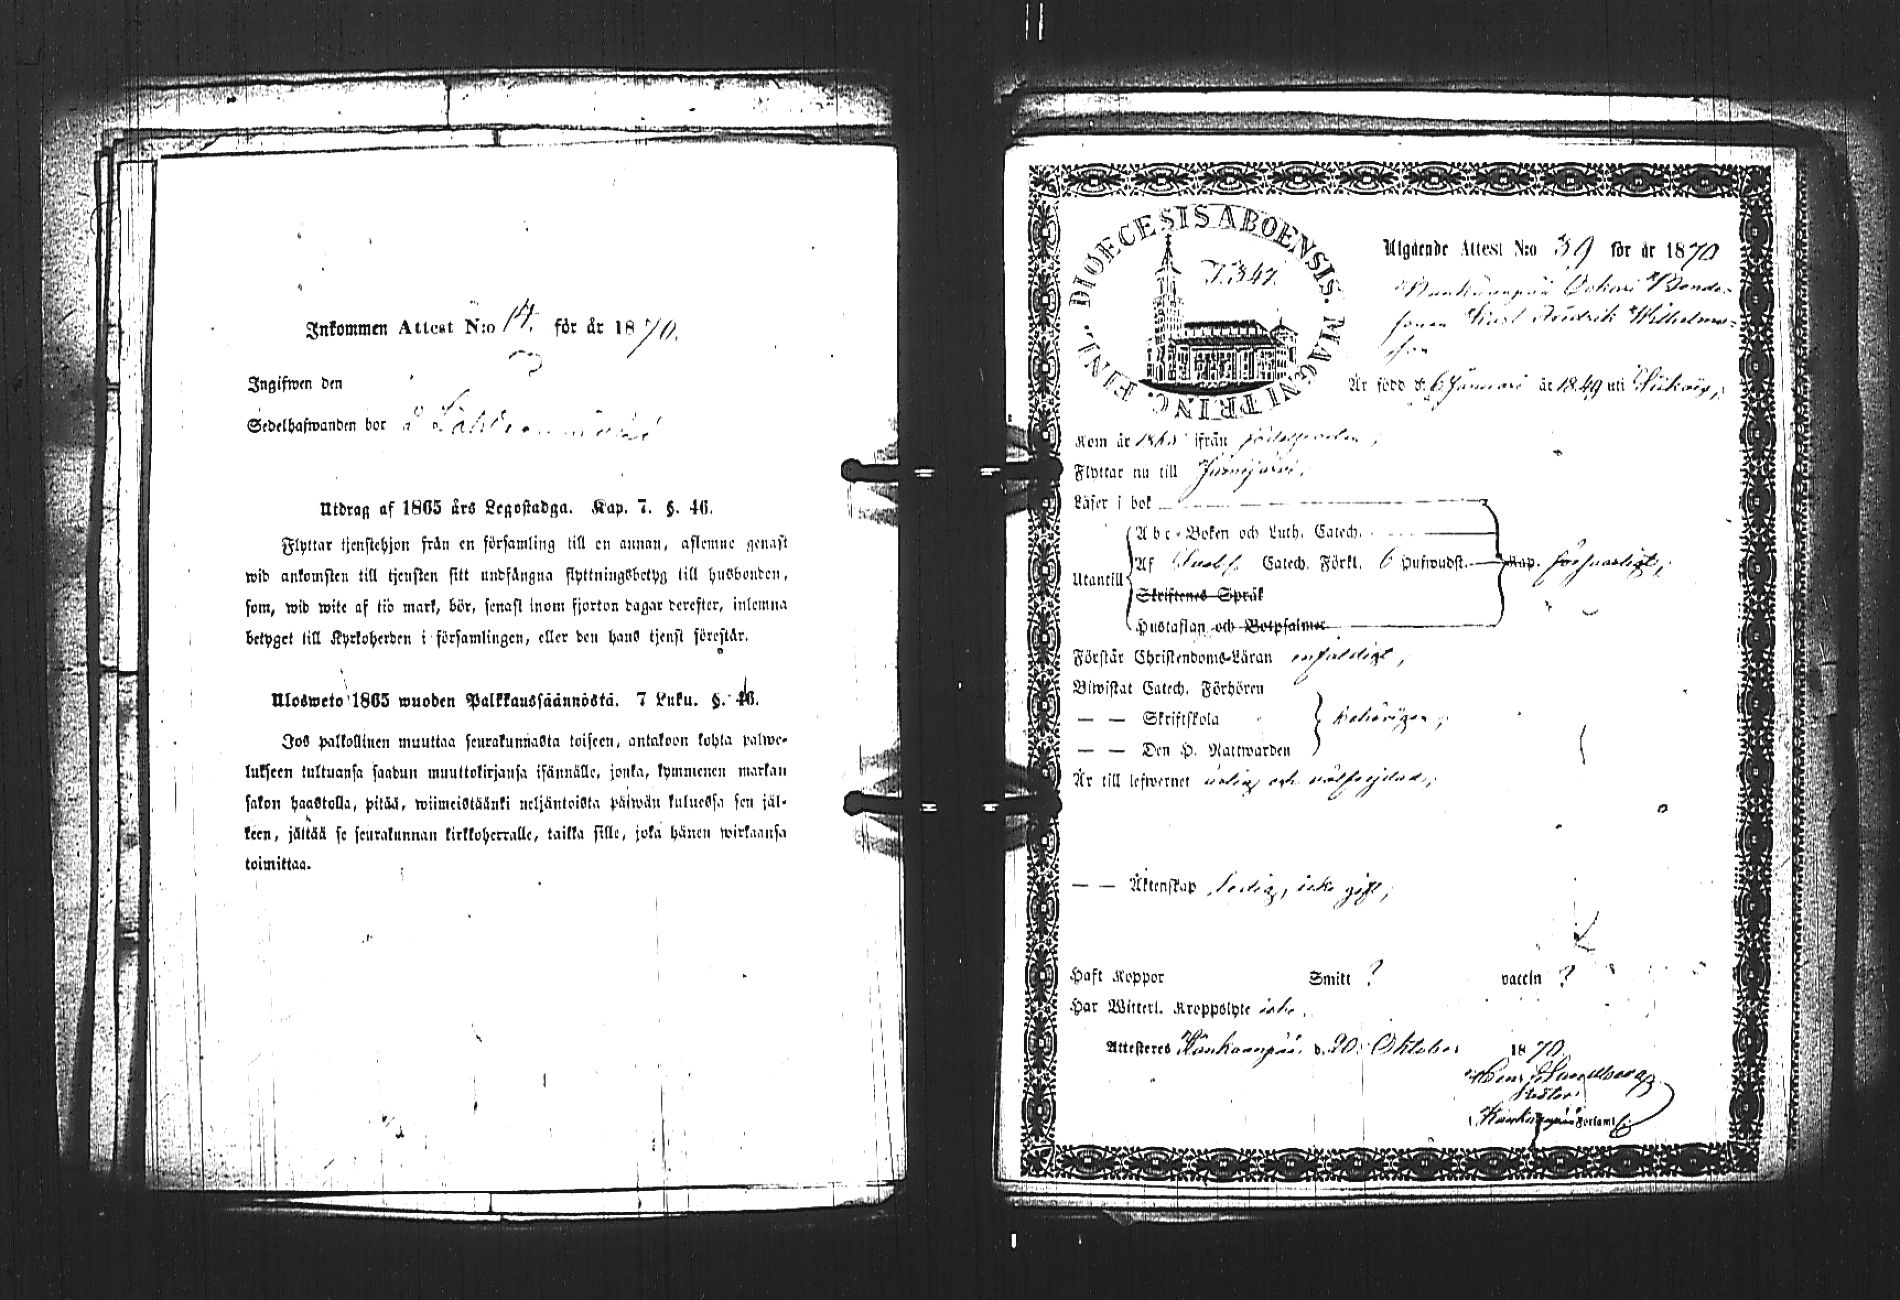 Inkommen Attest N:o 14. för år 1870.
Ingifwen den
Sedelhafwanden bor å
Utdrag af 1865 års Legostadga. Kap. 7. §. 46.
Flyttar tjenstehjon från en församling till en annan, aflemne genast
wid ankomsten till tjensten sitt undfångna flyttningsbetyg till husbonden,
som, wid wite af tio mark, bör, senast inom fjorton dagar derefter, inlemna
betyget till Kyrkoherden i församlingen, eller den hans tjenst förestår.
Ulosweto 1865 wuoden Palkkaussäännöstä. 7 Luku. §. 46.
Jos palkollinen muuttaa seurakunnasta toiseen, antakoon kohta palwe-
lukseen tultuansa saadun muuttokirjansa isännälle, jonka, kymmenen markan
sakon haastolla, pitää, wiimeistäänki neljäntoista päiwän kuluessa sen jäl-
keen, jättää se seurakunnan kirkkoherralle, taikka sille, joka hänen wirkaansa
toimittaa.
DIOECESIS ABOENSIS. MAGNI PRINC. FINL.
T.347.
Utgående Attest N:o 39 för år 1870
Bonde-
sonen Karl Fredrik Wilhelms-
son
Är född d. 6 Januari år 1849 uti
Kom år ifrån
Flyttar nu till Jämijärvi.
Läser i bok
Utantill
Abc-Boken och Luth. Catech.
Af Catech. Förkl. 6 Hufwudst. Kap. försvarligt;
Skriftenes Språk
Hustaflan och Botpsalmer
Förstår Christendoms-Läran enfaldigt,
Biwistat Catech. Förhören
— — Skriftskola behörigen,
— — Den H. Nattwarden
Är till lefwernet ärlig och välfrejdad,
— — Äktenskap ledig, icke gift,
Haft Koppor Smitt ? vaccin ?
Har Witterl. Kroppslyte icke.
Attesteres Kankaanpää d. 20 Oktober 1870
Kankaanpää Församl.